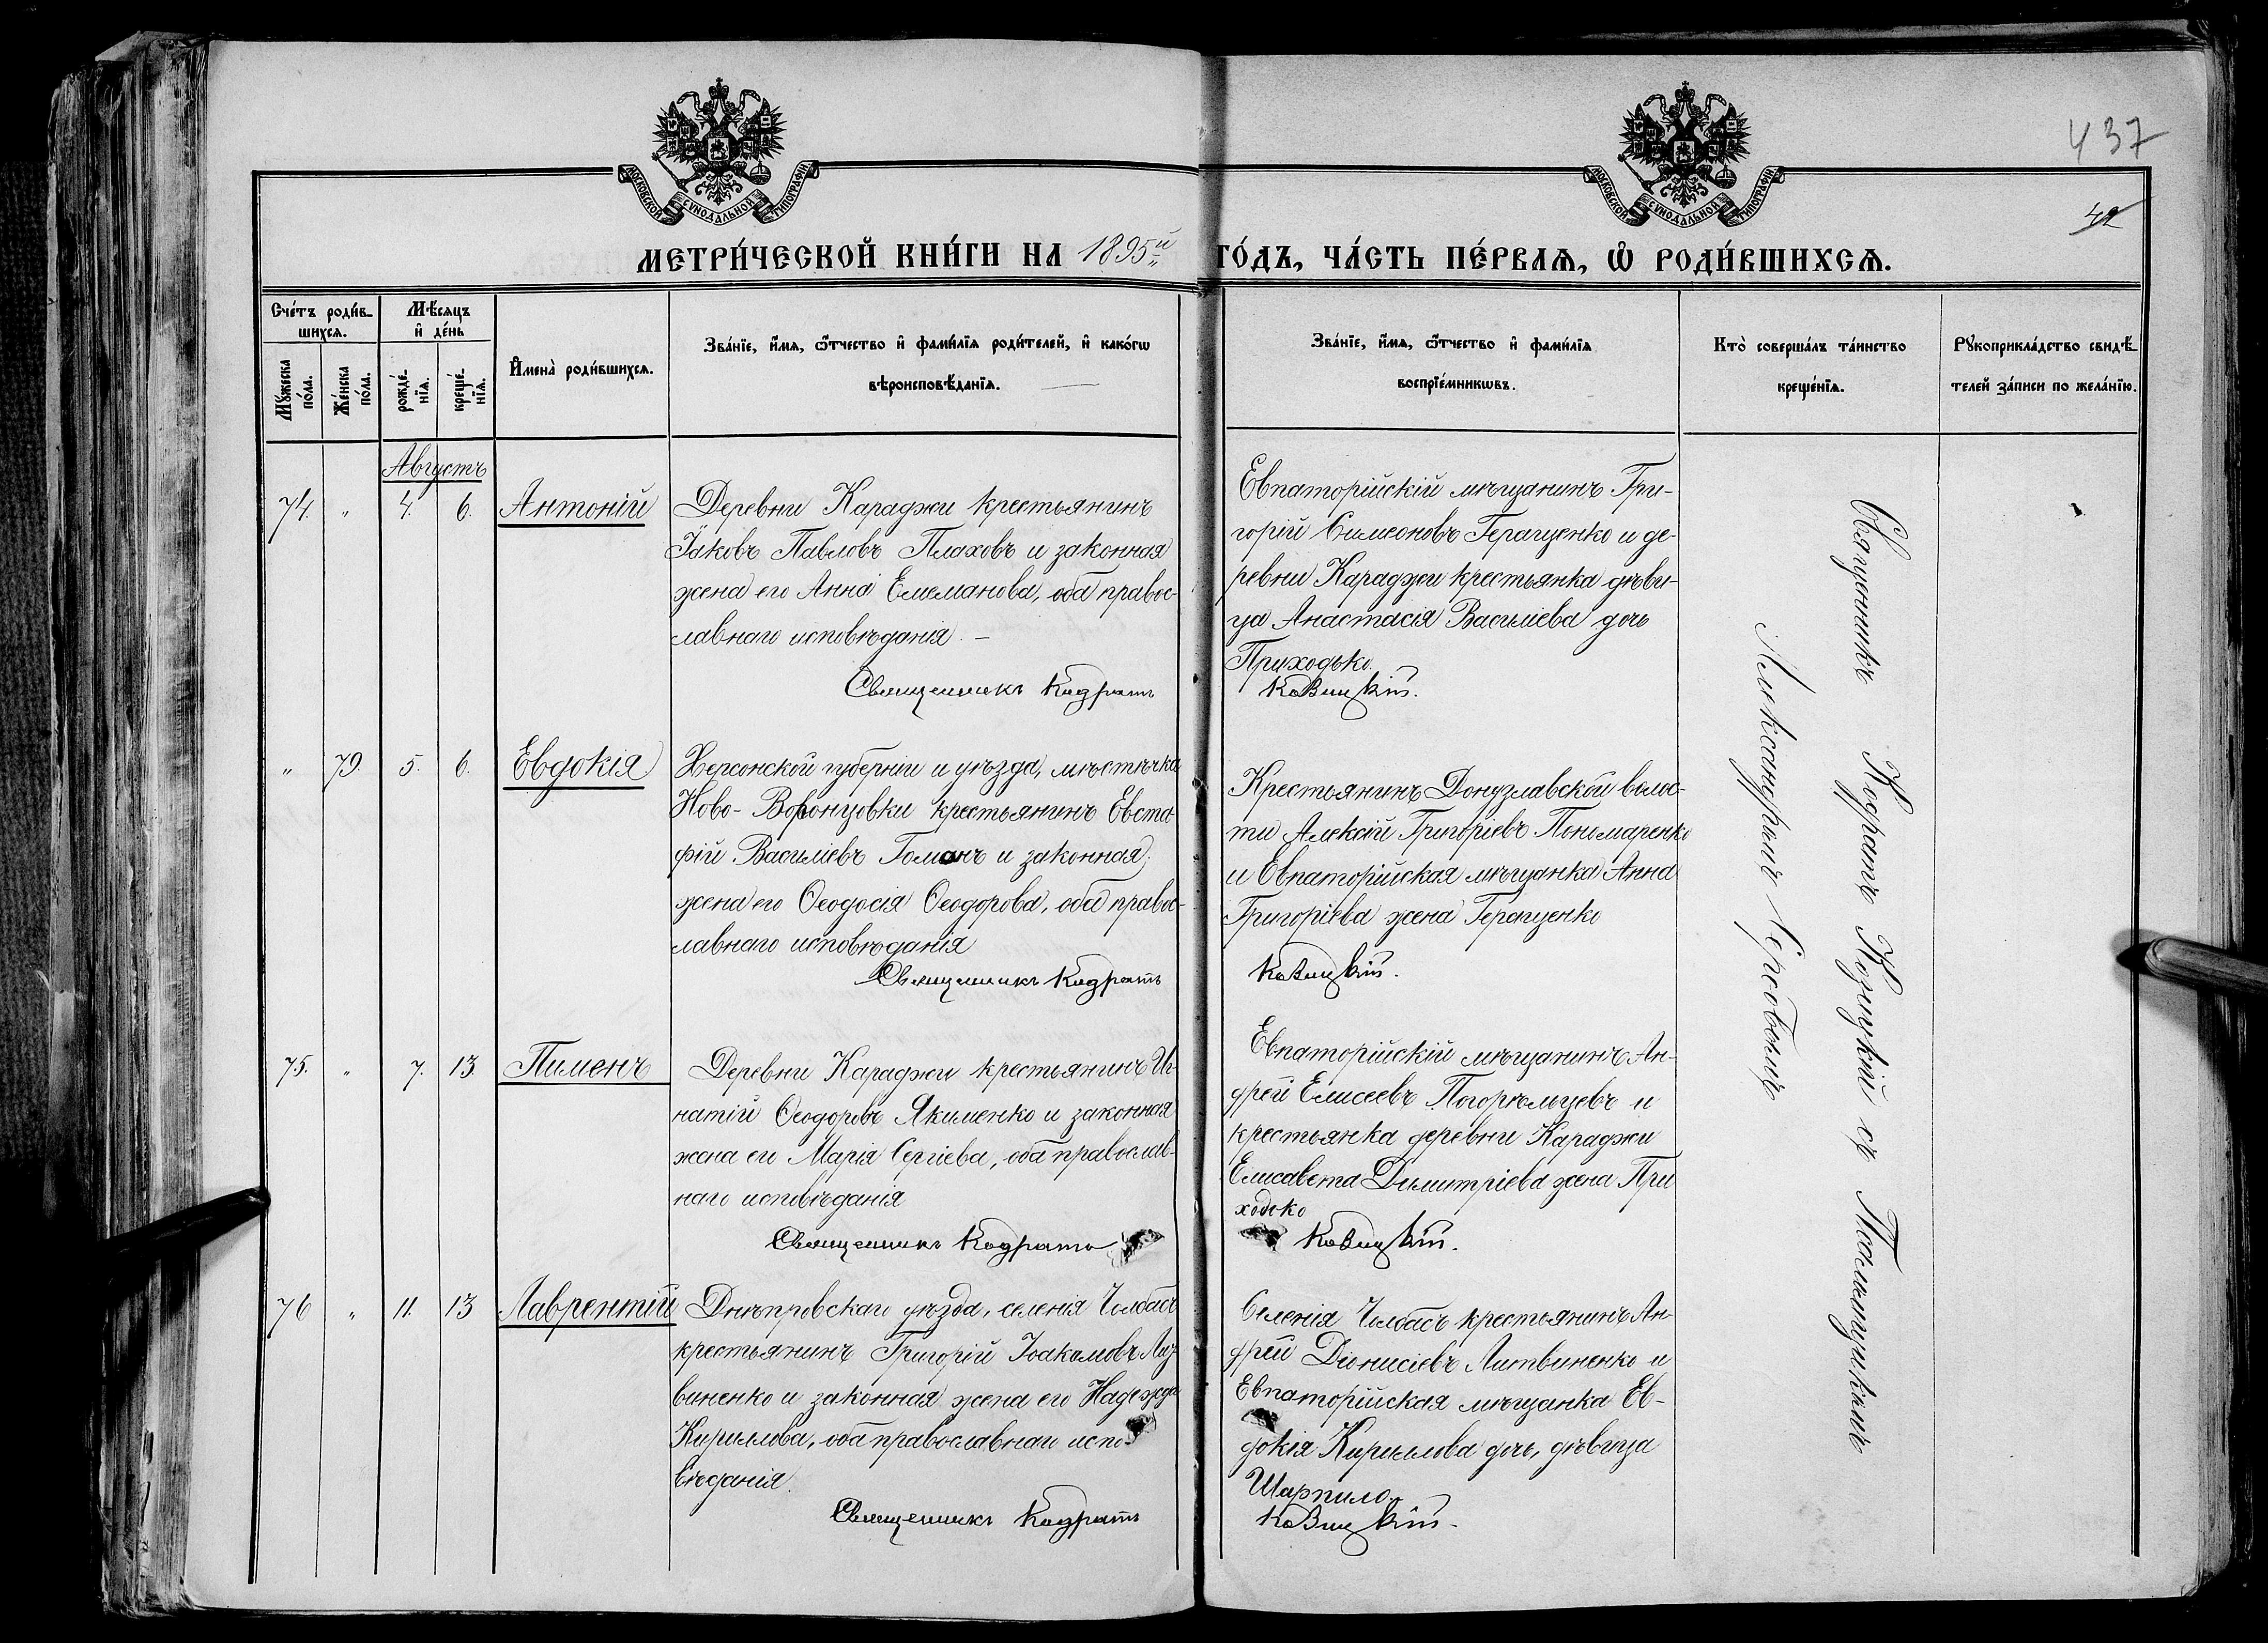 437
42
МОСКОВСКОЙ СѴНОДАЛЬНОЙ ТИПОГРАФІИ
МОСКОВСКОЙ СѴНОДАЛЬНОЙ ТИПОГРАФІИ
МЕТРИ́ЧЕСКОЙ КНИ́ГИ НА 1895й ГО́ДЪ, ЧА́СТЬ ПЕ́РВАѦ, Ѡ҆ РОДИ́ВШИХСѦ.
Сче́тъ роди́в-
шихсѧ.
Мꙋ́жеска по́ла.
Же́нска по́ла.
Мѣ́сѧцъ
и҆ де́нь
рожде́-
нїѧ.
креще́-
нїѧ.
И҆мена̀ роди́вшихсѧ.
Зва́нїе, и҆́мѧ, ѻ҆́тчество и҆ фами́лїѧ роди́телей, и҆ како́гѡ
вѣроисповѣ́данїѧ.
Зва́нїе, и҆́мѧ, ѻ҆́тчество и҆ фами́лїѧ
воспрїе́мникѡвъ.
Кто̀ соверша́лъ та́инство
креще́нїѧ.
Рꙋкоприкла́дство свидѣ́-
телей за́писи по жела́нїю.
Августъ
74. " 4. 6. Антоній
Деревни Караджи крестьянинъ
Іаковъ Павловъ Плаховъ и законная
жена его Анна Емеманова, оба правос-
лавнаго исповѣданія. –
Священникъ Кодратъ
Евпаторійскій мѣщанинъ Гри-
горій Симеоновъ Геращенко и де-
ревни Караджи крестьянка дѣви-
ца Анастасія Василіева дочь
Приходько.
Козицкій.
" 79. 5. 6. Евдокія
Херсонской губерніи и уѣзда, мѣстечка
Ново-Воронцовки крестьянинъ Евста-
фій Василіевъ Гоманъ и законная
жена его Ѳеодосія Ѳеодорова, оба правос-
лавнаго исповѣданія
Священникъ Кодратъ
Крестьянинъ Донузлавской волос-
ти Алексій Григоріевъ Пономаренко
и Евпаторійская мѣщанка Анна
Григоріева жена Геращенко
Козицкій.
75. " 7. 13. Пименъ
Деревни Караджи крестьянинъ Иг-
натій Ѳеодоровъ Якименко и законная
жена его Марія Сергіева, оба православ-
наго исповѣданія
Священникъ Кодратъ
Евпаторійскій мѣщанинъ Ан-
дрей Елисеевъ Погорѣльцевъ и
крестьянка деревни Караджи
Елисавета Димитріева жена При
ходько
Козицкій.
76 " 11. 13 Лаврентій
Днѣпровскаго уѣзда, селенія Чолбасъ
крестьянинъ Григорій Іоакимовъ
виненко и законная жена его Надежда
Кириллова, оба православнаго испо-
вѣданія.
Священникъ Кодратъ
Селенія Чолбасъ крестьянинъ Ан-
дрей Діонисіевъ Литвиненко и
Евпаторійская мѣщанка Ев-
докія Кириллова дочь, дѣвица
Шарпило.
Козицкій.
Священникъ Кодратъ Козицкій съ Псаломщикомъ
Александромъ